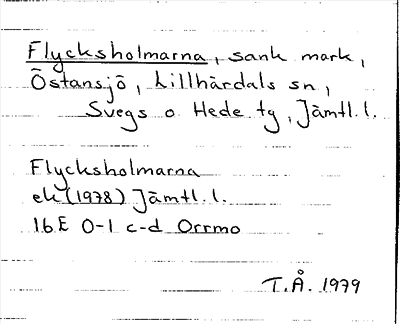 Flycksholmarna, sank mark,
Östansjö, Lillhärdals sn,
Svegs o Hede tg, Jämtl. l.
Flycksholmarna
ek (1978) Jämtl. l.
16E 0-1 c-d Orrmo
T.Å. 1979